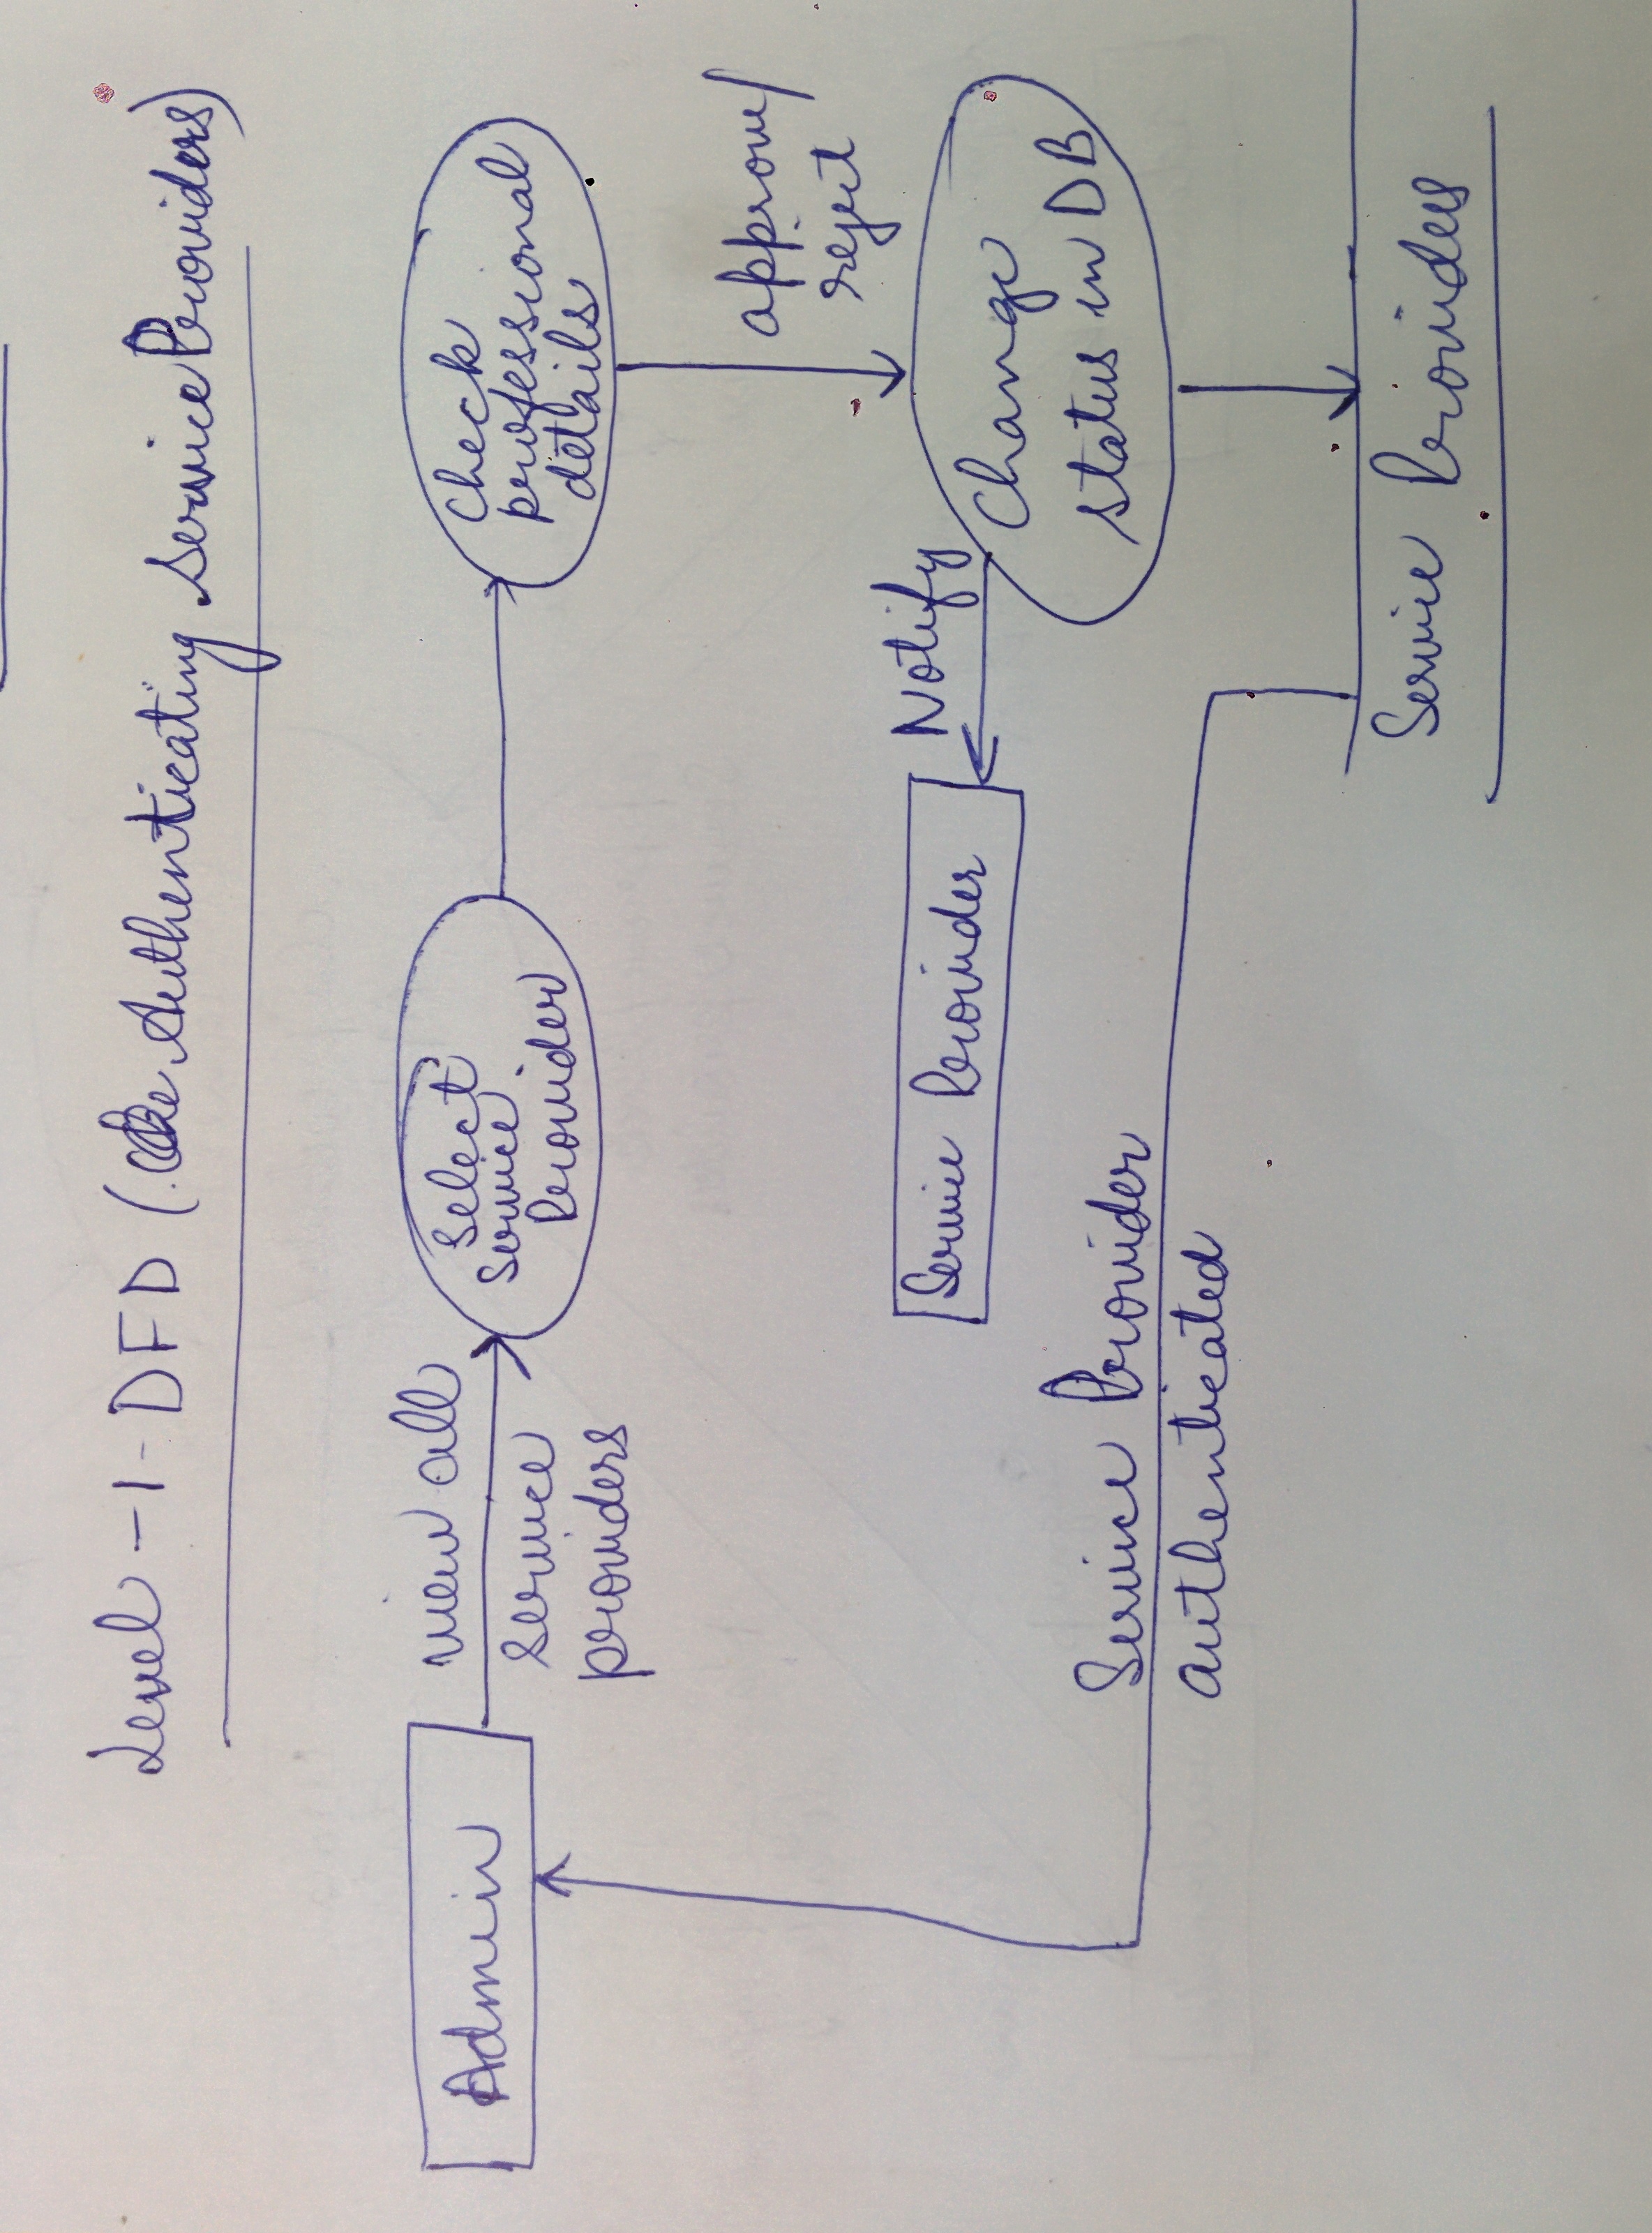 Level - 1 - DFD (Authenticating Service Providers)
Admin
view all
service
providers
Select
Service
Provider
Check
professional
details
approve/
reject
Notify
Service Provider
Change
status in DB
Service Provider
authenticated
Service Providers